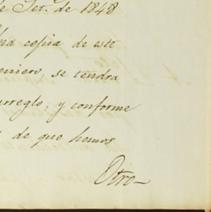 de Set.e de 1848
una copia de este
geniero, se tendra
arreglo; y conforme
de que hemos
Otro—